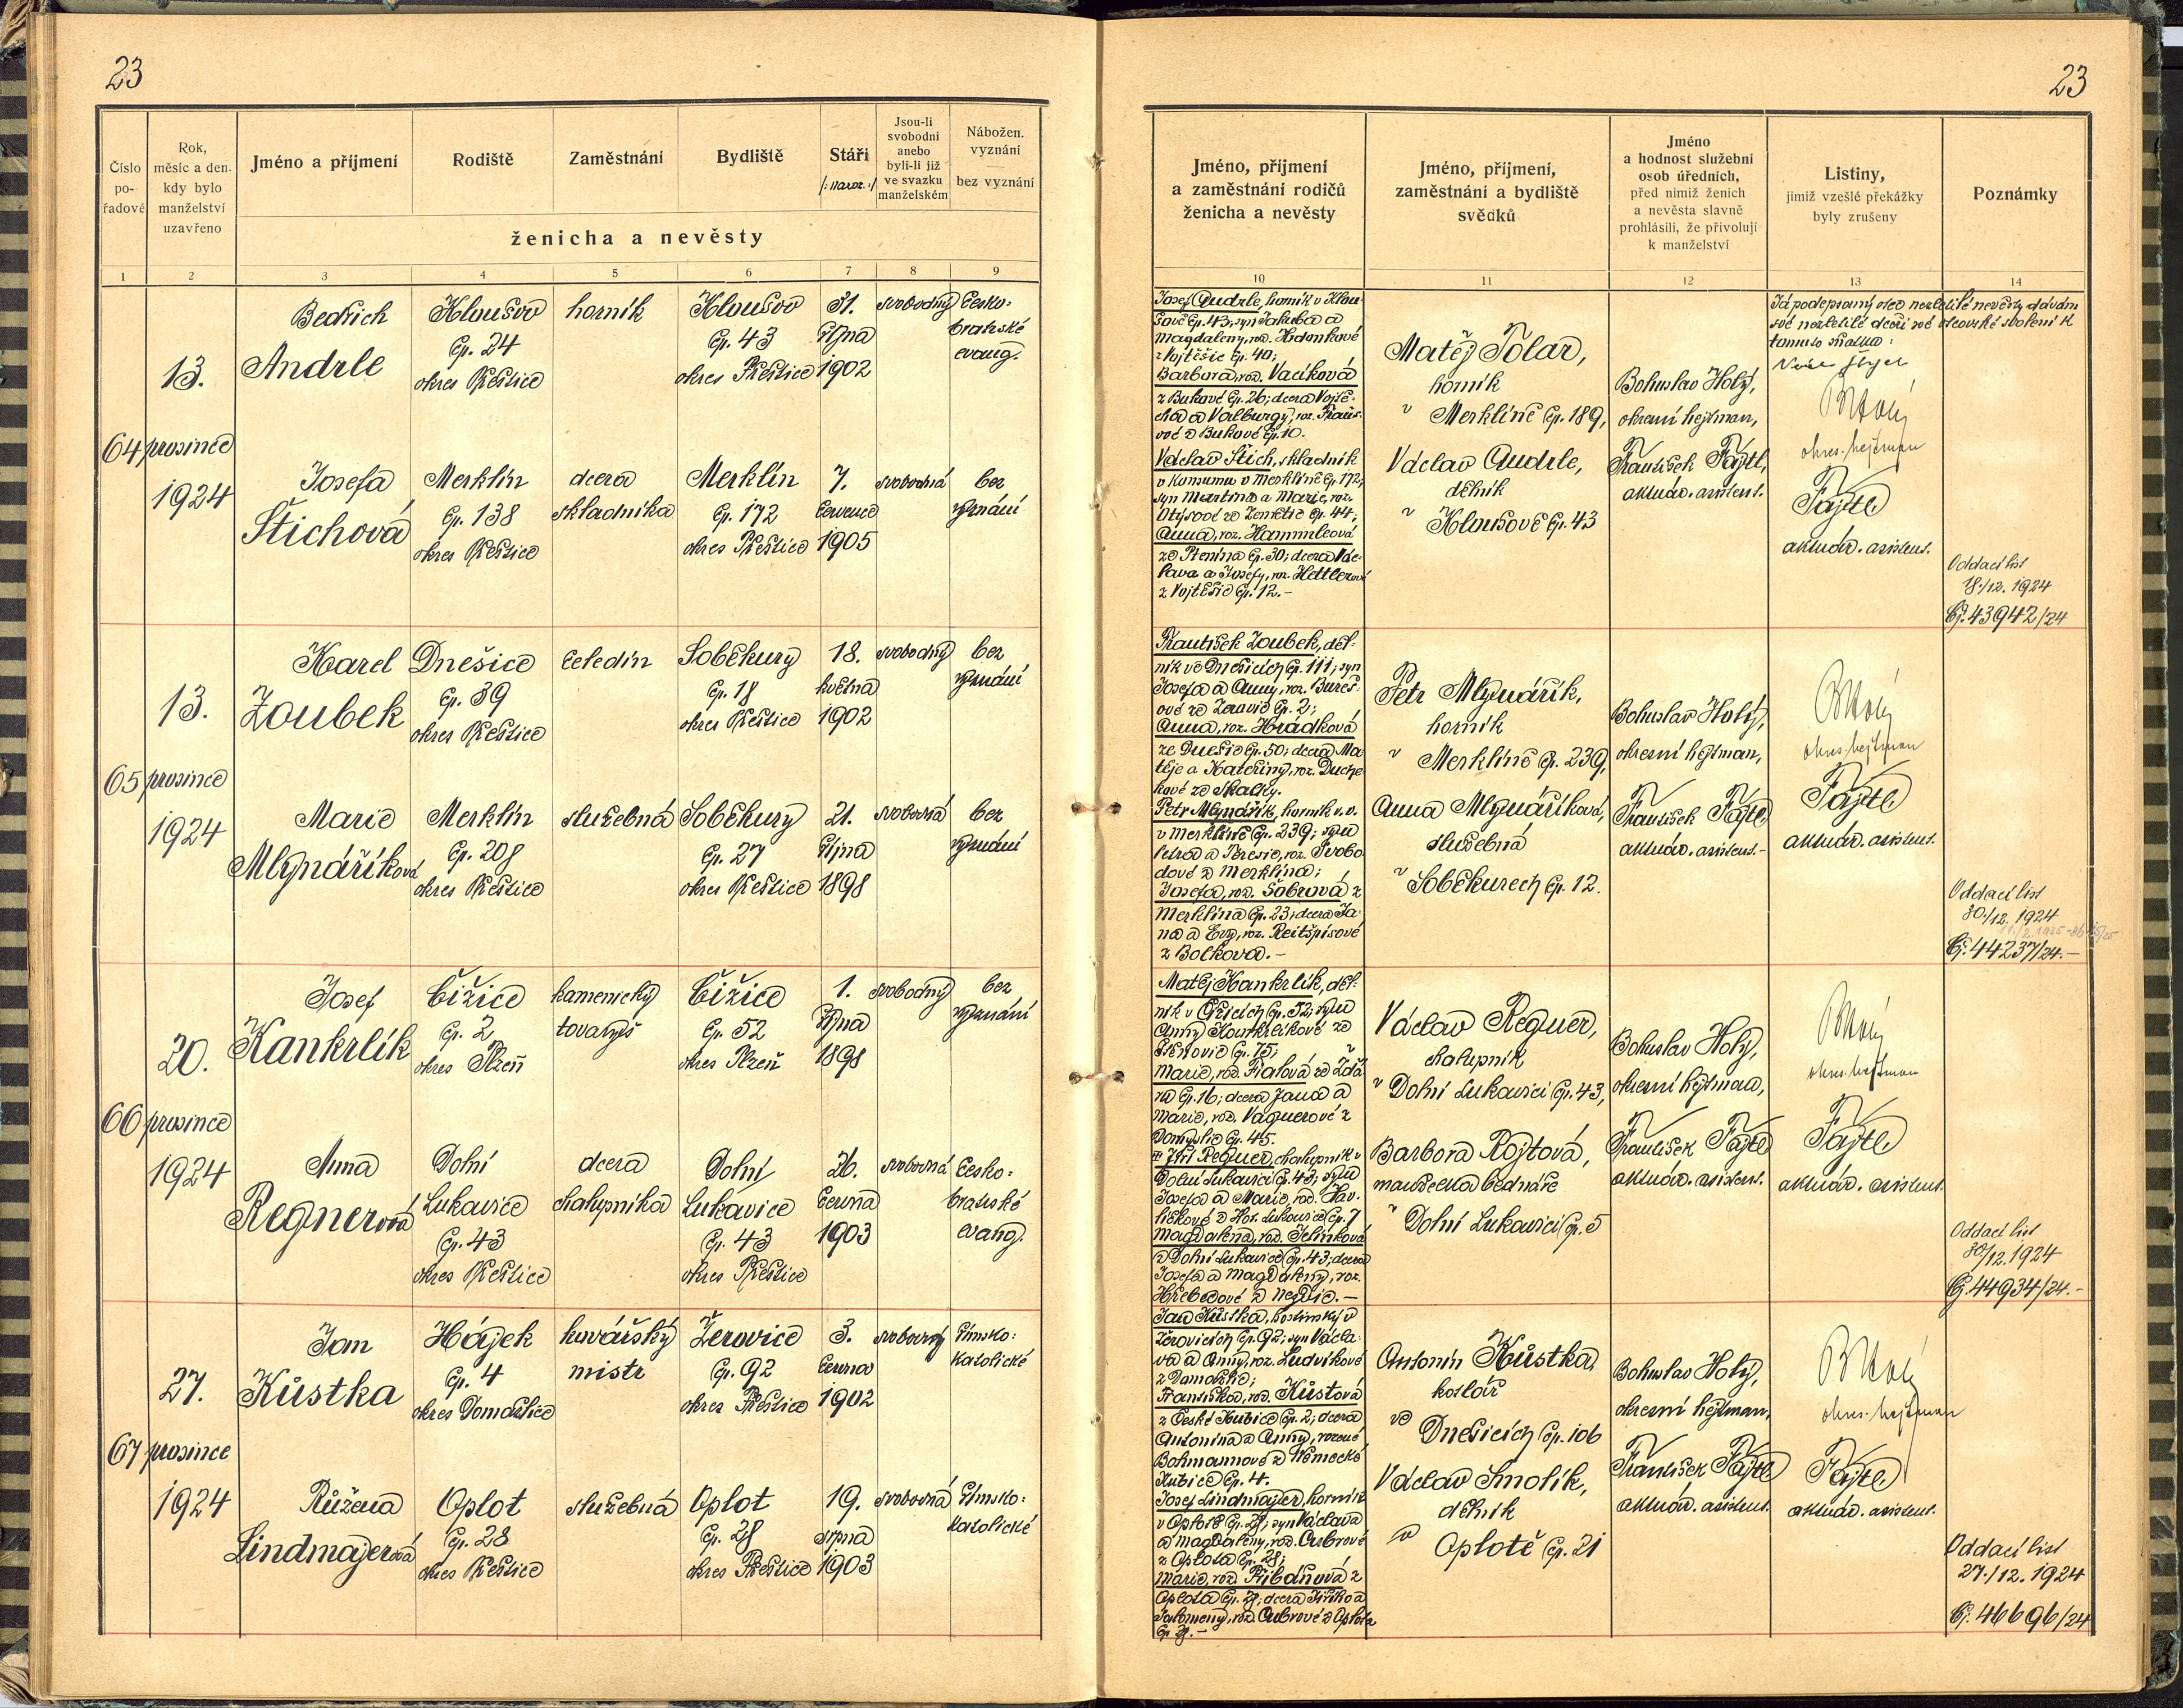 23
23
Číslo pořadové
Rok, měsíc a den, kdy bylo manželství uzavřeno
Jméno a příjmení
Rodiště
Zaměstnání
Bydliště
Stáří
/: naroz. :/
Jsou-li svobodni anebo byli-li již ve svazku manželském
Nábožen. vyznání
bez vyznání
ženicha a nevěsty
1 2 3 4 5 6 7 8 9
64
13.
prosince
1924
Bedřich
Andrle
Hloušov
Čp. 24
okres Přeštice
horník
Čp. 43
okres Přeštice
31.
října
1902
svobodný
česko-
bratrské
evang.
Josefa
Štichová
Merklín
Čp. 138
okres Přeštice
dcera
skladníka
Merklín
Čp. 172
okres Přeštice
7.
července
1905
svobodná
bez
vyznání
65
13.
prosince
1924
Karel
Zoubek
Dnešice
Čp. 39
okres Přeštice
čeledín
Soběkury
Čp. 18
okres Přeštice
18.
května
1902
svobodný
bez
vyznání
Marie
Mlynáříková
Merklín
Čp. 208
okres Přeštice
služebná
Soběkury
Čp. 27
okres Přeštice
21.
října
1898
svobodná
bez
vyznání
66
20.
prosince
1924
Josef
Kankrlík
Čižice
Čp. 2
okres Plzeň
kamenický
tovaryš
Čižice
Čp. 52
okres Plzeň
1.
října
1898
svobodný
bez
vyznání
Anna
Regnerová
Dolní
Lukavice
Čp. 43
okres Přeštice
dcera
chalupníka
Dolní
Lukavice
Čp. 43
okres Přeštice
26.
června
1903
svobodná
česko-
bratrské
evang.
67
27.
prosince
1924
Jan
Kůstka
Hájek
Čp. 4
okres Domažlice
kovářský
mistr
Žerovice
Čp. 92
okres Přeštice
3.
června
1902
svobodný
římsko-
katolické
Růžena
Lindmajerová
Oplot
Čp. 28
okres Přeštice
služebná
Oplot
Čp. 28
okres Přeštice
19.
srpna
1903
svobodná
římsko-
katolické
Jméno, příjmení a zaměstnání rodičů ženicha a nevěsty
Jméno, příjmení, zaměstnání a bydliště svědků
Jméno a hodnost služební osob úředních, před nimiž ženich a nevěsta slavně prohlásili, že přivolují k manželství
Listiny, jimiž vzešlé překážky byly zrušeny
Poznámky
10 11 12 13 14
Josef Andrle, horník v
Čp. 43, syn Jakuba a
Magdaleny, roz.
z Vojtěšic Čp. 40;
Barbora, roz. Vacíková
z Bukové Čp. 26; dcera Vojtě-
cha a Valburgy, roz.
z Bukové Čp. 10.
Václav Štich, skladník
v Konsumu v Merklíně Čp. 172,
syn Martina a Marie, roz.
Čp. 44;
Anna, roz. Hammleová
ze Ptenína Čp. 30; dcera Vác-
lava a Josefy, roz.
z Vojtěšic Čp. 12.-
Matěj Tolar,
horník
v Merklíně Čp. 189,
Václav Andrle,
dělník
v Hloušově Čp. 43
Bohuslav Holý,
okresní hejtman,
František Fajtl,
aktuár. asistent.
Já podepsaný otec nezletilé nevěsty dávám
své nezletilé dceři své otcovské svolení k
tomuto sňatku:
BHolý
okres. hejtman
Fajtl
aktuár. asistent.
Oddací list
18./12. 1924
Čj. 43942/24
František Zoubek, děl-
ník ve Dnešicích Čp. 111, syn
Josefa a Anny, roz. Bureš-
ové ze Čp. 2;
Anna, roz. Hrádková
ze Dnešic Čp. 50; dcera Ma-
těje a Kateřiny, roz.
ze Skalky.
Petr Mlynářík, horník v. v.
v Merklíně Čp. 239; syn
Petra a Terezie, roz. Svobo-
dové z Merklína;
Josefa, roz. Šobrová z
Merklína Čp. 23; dcera Ja-
na a Evy, roz. Reitšpísové
z Bolkova.-
Petr Mlynářík,
horník
v Merklíně Čp. 239,
Anna Mlynáříková,
služebná
v Soběkurech Čp. 12.
Bohuslav Holý,
okresní hejtman,
František Fajtl
aktuár. asistent.-
BHolý
okres. hejtman
Fajtl
aktuár. asistent.
Oddací list
30./12. 1924
Čj. 44237/24.-
Matěj Kankrlík, děl-
ník v Čižicích Čp. 52; syn
Anny Kankrlíkové ze
Čp. 75;
Marie, roz. Fialová ze
Čp. 16; dcera Jana a
Marie, roz. Vagnerové z
Čp. 45.
Jiří Regner, chalupník v
Dolní Lukavici Čp. 43, syn
Josefa a Marie, roz. Hav-
líčkové z Hor. Lukavice Čp. 7
Magdalena, roz. Jelínková
z Dolní Lukavice Čp. 43; dcera
Josefa a Magdaleny, roz.
Václav Regner,
chalupník
v Dolní Lukavici Čp. 43,
Barbora Rojtová,
manželka bednáře
v Dolní Lukavici Čp. 5
Bohuslav Holý,
okresní hejtman,
František Fajtl
aktuár. asistent.
BHolý
okres. hejtman
Fajtl
aktuár. asistent.
Oddací list
30/12. 1924
Čj. 44934/24.-
Jan Kůstka, hostinský v
Žerovicích Čp. 92; syn Václa-
va a Anny, roz. Ludvíkové
z Domažlic;
Františka, roz. Kůstová
z České Kubice Čp. 2; dcera
Antonína a Anny, rozené
Bohmannové z Německé
Kubice Čp. 4.
Josef Lindmajer, horník
v Oplotě Čp. 28; syn Václava
a Magdaleny, roz. Cubrové
z Oplota Čp. 28;
Marie, roz. Přibáňová z
Oplota Čp. 28; dcera Jiříka a
roz. Cubrové z Oplota
Antonín Kůstka,
kovář
ve Dnešicích Čp. 106
Václav Smolík,
dělník
v Oplotě Čp. 21
Bohuslav Holý,
okresní hejtman,
František Fajtl
aktuár. asistent.
BHolý
okres. hejtman
Fajtl
aktuár. asistent.
Oddací list
27./12. 1924
Čj. 46696/24